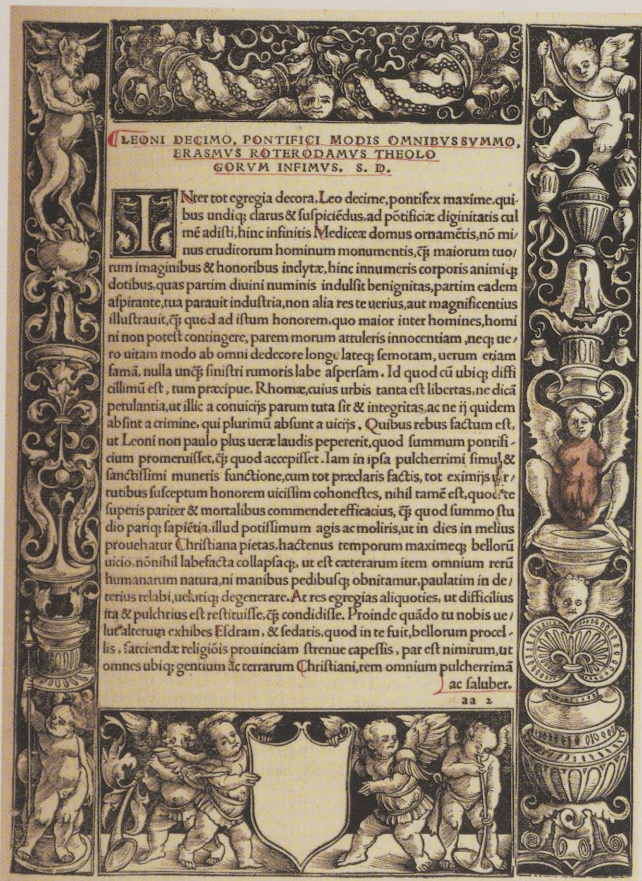 LEONI DECIMO, PONTIFICI MODIS OMNIBUS SVMMO,
ERASMVS ROTERODAMVS THEOLO
GORVM INFIMVS. S. D.
INter tot egregia decora, Leo decime, pontifex maxime, qui-
bus undiq; clarus & suspiciēdus, ad pōtificiæ diginitatis cul
mē adisti, hinc infinitis Mediceæ domus ornamētis, nō mi-
nus eruditorum hominum monumentis, q̄; maiorum tuo/
rum imaginibus & honoribus indytæ, hinc innumeris corporis animiq;
dotibus, quas partim diuini numinis indulsit benignitas, partim eadem
aspirante, tua parauit industria, non alia res te uerius, aut magnificentius
illustrauit, q̄; quod ad istum honorem, quo maior inter homines, homi
ni non potest contingere, parem morum attuleris innocentiam, neq; ue/
ro uitam modo ab omni dedecore longe lateq; semotam, uerum etiam
famā, nulla unq̄; sinistri rumoris labe aspersam. Id quod cū ubiq; diffi
cillimū est, tum præcipue. Rhomæ, cuius urbis tanta est libertas, ne dicā
petulantia, ut illic a conuicijs parum tuta sit & integritas, ac ne ij quidem
absint a crimine, qui plurimū absunt a uicijs. Quibus rebus factum est,
ut Leoni non paulo plus ueræ laudis pepererit, quod summum pontifi-
cium promeruisset, q̄; quod accepisset. Iam in ipsa pulcherrimi simul &
sanctissimi muneris functione, cum tot prædaris factis, tot eximijs uir/
tutibus susceptum honorem uicissim cohonestes, nihil tamē est, quod te
superis pariter & mortalibus commendet efficacius, q̄; quod summo stu
dio pariq; sapiētia, illud potissimum agis ac moliris, ut in dies in melius
prouehatur Christiana pietas, hactenus temporum maximeq; bellorū
uicio, nōnihil labefacta collapsaq;, ut est cæterarum item omnium rerū
humanarum natura, ni manibus pedibusq; obnitamur, paulatim in de/
terius relabi, uelutiq; degenerare. At res egregias aliquoties, ut difficilius
ita & pulchrius est restituisse, q̄; condidisse. Proinde quādo tu nobis ue/
lut alterum exhibes Esdram, & sedatis, quod in te fuit, bellorum procel-
lis, sarciendæ religiōis prouinciam strenue capessis, par est nimirum, ut
omnes ubiq; gentium ac terrarum Christiani, rem omnium pulcherrimā
ac saluber.
aa 2